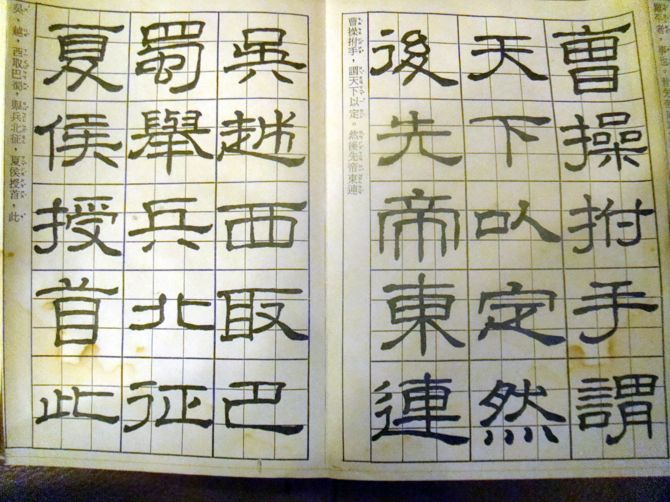 曹操拊手
謂天下以定
然後先帝東連
曹操拊手，謂天下以定。然後先帝東連
吳越西取巴
蜀舉兵北征
夏侯授首此
吳、越，西取巴蜀，舉兵北征，夏侯授首，此